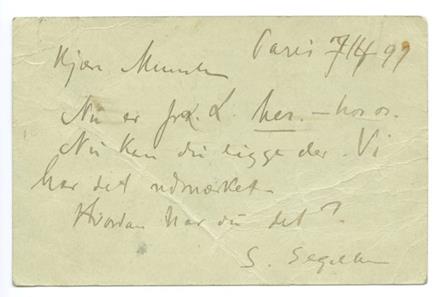 Paris 7/4 99
Kjære Munch
Nu er frk. L. her. – hos os.
Nu kan du ligge der. Vi
har det udmærket.
Hvordan har du det?
S. Segelcke